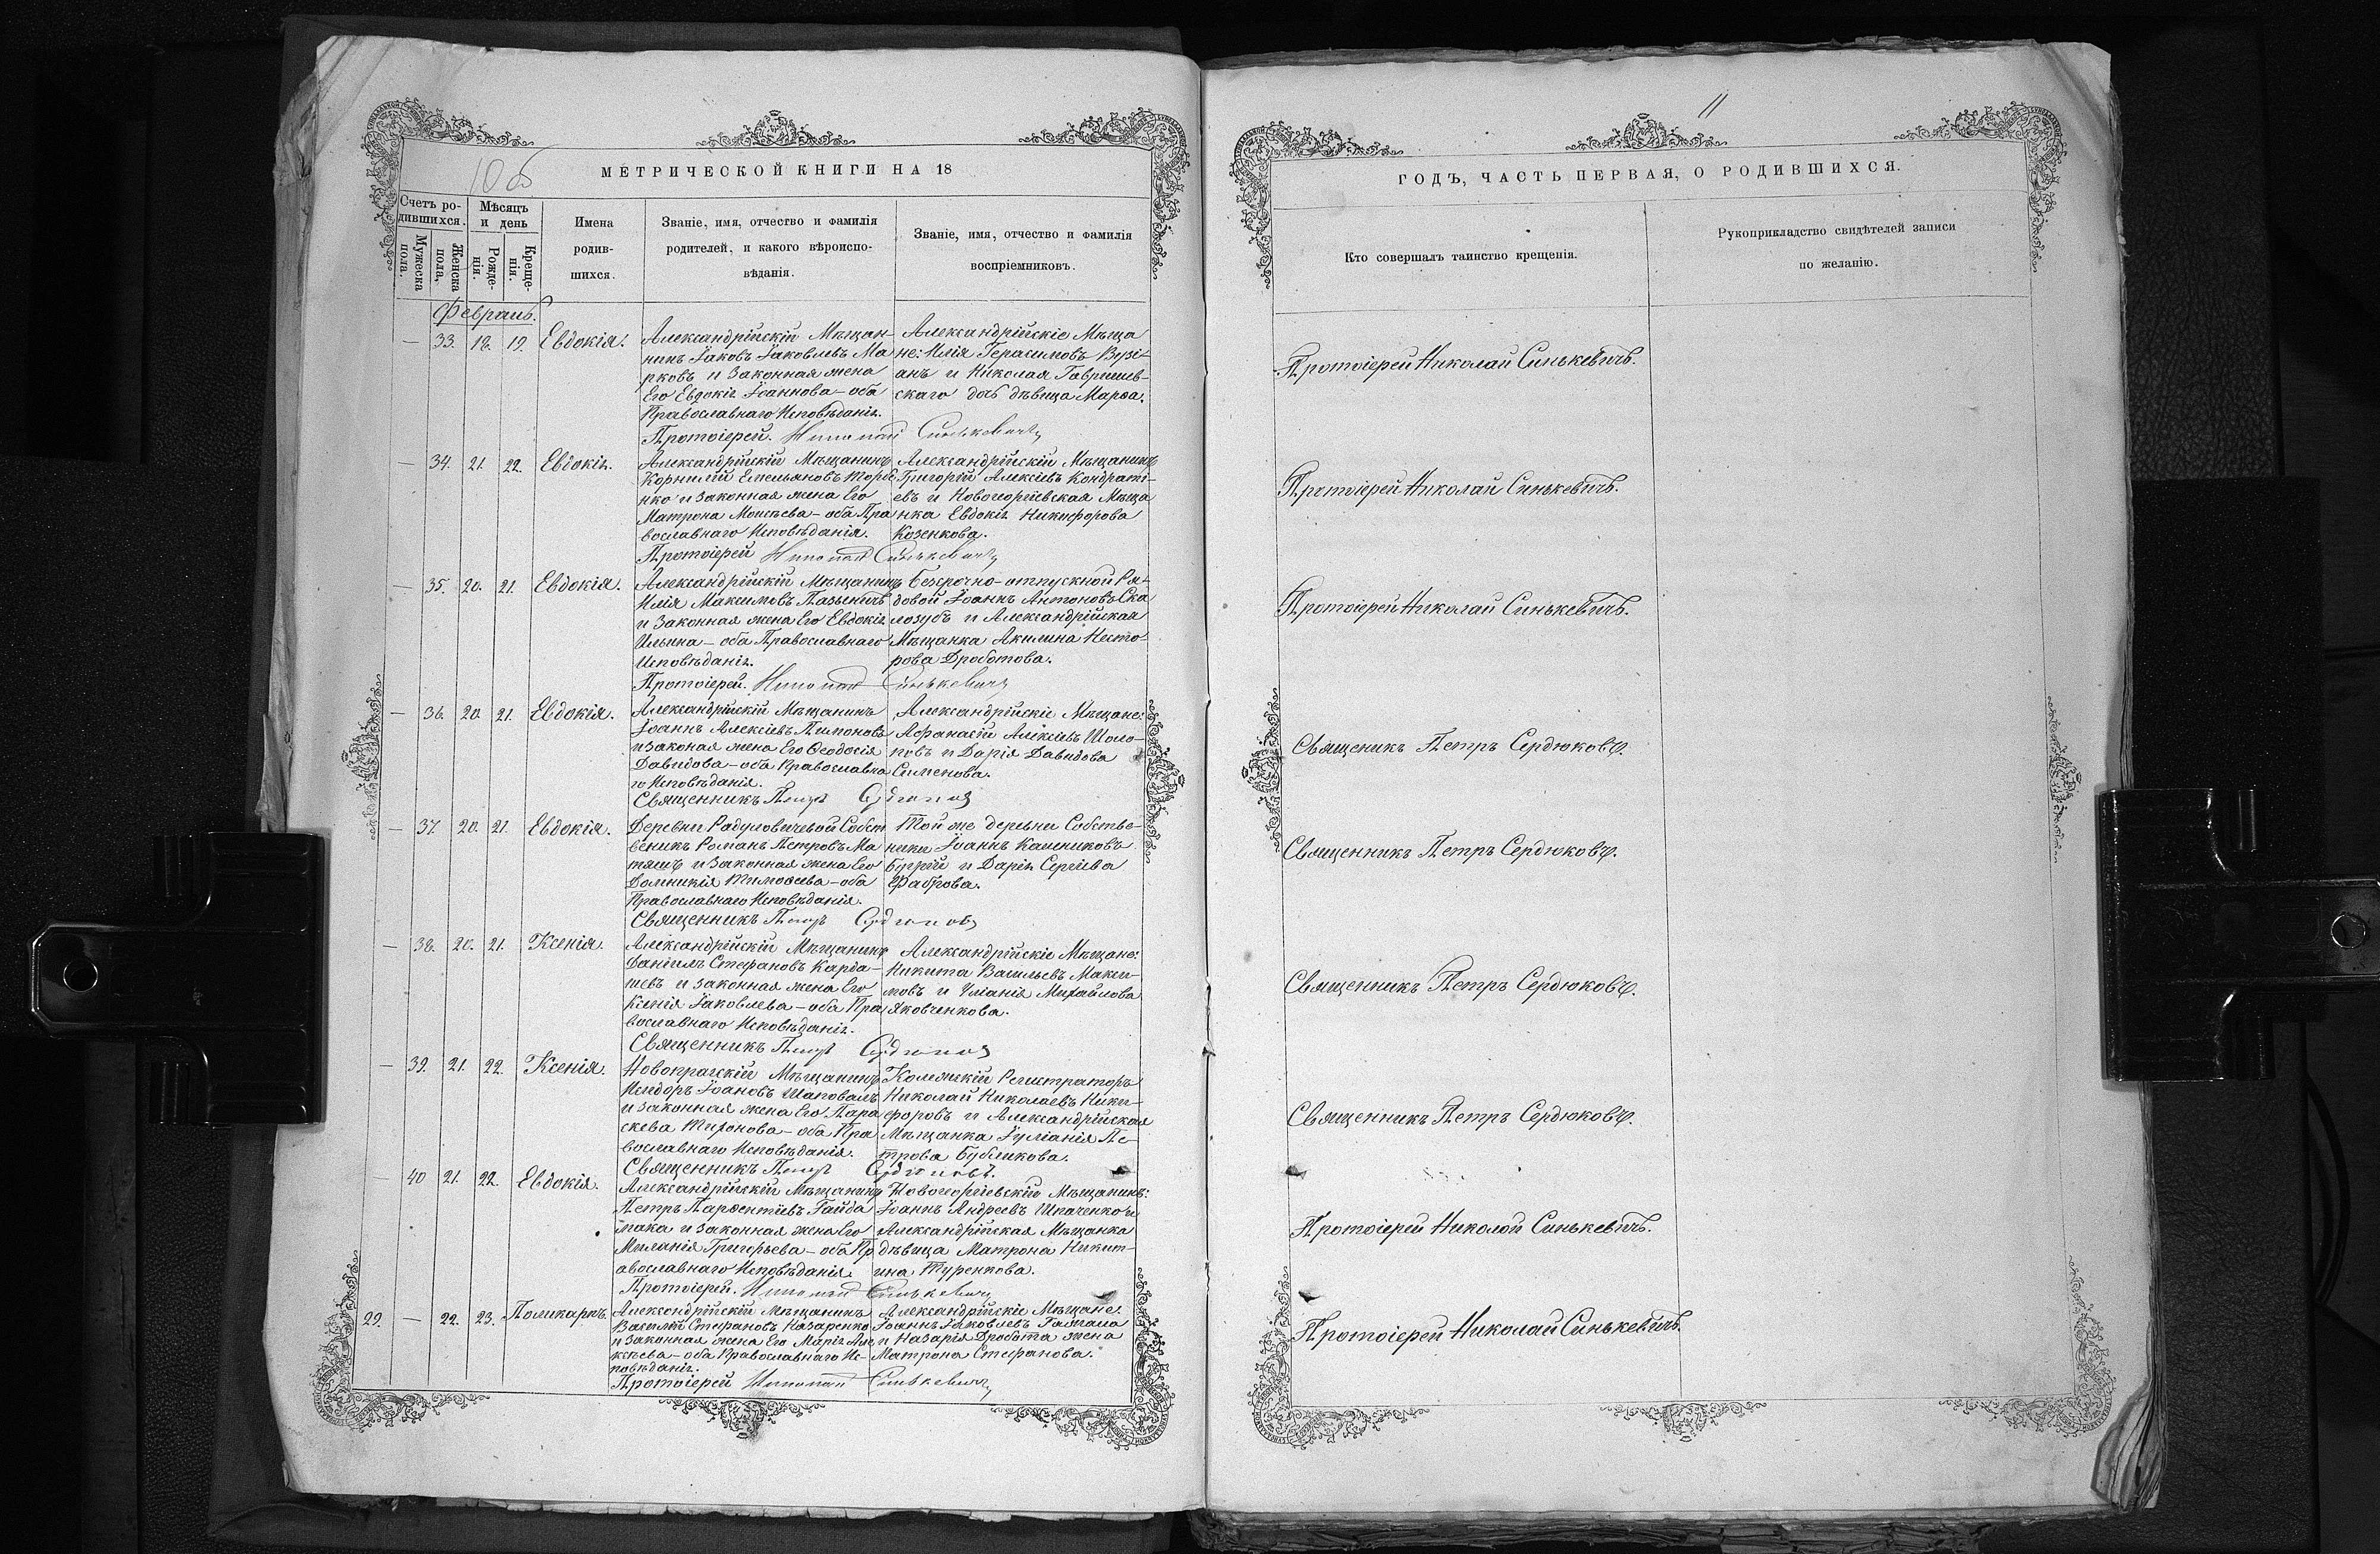 10об
МЕТРИЧЕСКОЙ КНИГИ НА 18
Счетъ ро-
дившихся.
Мужеска
пола.
Женска
пола,
Мѣсяцъ
и день
Рожде-
нія.
Креще-
нія.
Имена
родив-
шихся.
Званіе, имя, отчество и фамилія
родителей, и какого вѣроиспо-
вѣданія.
Званіе, имя, отчество и фамилія
воспріемниковъ.
Февраль.
— 33. 18. 19. Евдокія.
Александрійскій Мѣщан-
нинъ Іаковъ Іаковлевъ Ма
рковъ и Законная жена
Его Евдокія Іоаннова — оба
Православнаго Исповѣданія.
Протоіерей. Николай Синькевичъ
Александрійскіе Мѣща
не: Илія Герасимовъ
анъ и Николая Гавришев-
скаго дочь дѣвица Марѳа.
— 34. 21. 22. Евдокія.
Александрійскій Мѣщанинъ
Корнилій Емельяновъ Торбе
нко и Законная жена Его
Матрона Моисѣева — оба Пра
вославнаго Исповѣданія.
Протоіерей Николай Синькевичъ
Александрійскій Мѣщанинъ
Григорій Алексіевъ Кондраті-
евъ и Новогеоргіевская Мѣща
нка Евдокія Никифорова
Козенкова.
— 35. 20. 21. Евдокія.
Александрійскій Мѣщанинъ
Илія Максимовъ
и Законная жена Его Евдокія
Ильина — оба Православнаго
Исповѣданія.
Протоіерей. Николай Синькевичъ
Безсрочно-отпускной Ря-
довой Іоаннъ Антоновъ Ска
лозубъ и Александрійская
Мѣщанка Акилина Несто-
рова Дроботова.
— 36. 20. 21. Евдокія.
Александрійскій Мѣщанинъ
Іоаннъ Алексіевъ
и законая жена Его Ѳеодосія
Давидова — оба Православна
го Исповѣданія.
Священникъ Петръ Сердюковъ
Александрійскіе Мѣщане:
Аѳанасій Алексіевъ Шоло-
ковъ и Дарія Давидова
Сименова.
— 37. 20. 21. Евдокія.
Деревни Радуловичевой Собст
веникъ Романъ Петровъ Ма
тяшъ и Законная жена Его
Домникія Тимоѳеева — оба
Православнаго Исповѣданія.
Священникъ Петръ Сердюковъ
Той же деревни Собстве-
ники Іоаннъ Калениковъ
Бугрій и Дарія Сергіева
Фаброва.
— 38. 20. 21. Ксенія.
Александрійскій Мѣщанинъ
Даніилъ Стефановъ Карда-
шевъ и законная жена Его
Ксенія Іаковлева — оба Пра
вославнаго Исповѣданія.
Священникъ Петръ Сердюковъ
Александрійскіе Мѣщане:
Никита Васильевъ Макси-
мовъ и Уліанія Михайлова
Яковченкова.
— 39. 21. 22. Ксенія.
Новопрагскій Мѣщанинъ
Исидоръ Іоановъ Шаповалъ
и законная жена Его Пара
скева Тихонова — оба Пра
вославнаго Исповѣданія.
Священникъ Петръ Сердюковъ.
Колежскій Регистраторъ
Николай Николаевъ Ники-
форовъ и Александрійская
Мѣщанка Іуліанія Пе-
трова Бубликова.
— 40 21. 22. Евдокія.
Александрійскій Мѣщанинъ
Петръ Парѳентіевъ Гайда
мака и Законная жена Его
Миланія Григорьева — оба Пр
авославнаго Исповѣданія.
Протоіерей. Николай Синькевичъ
Новогеоргіевскій Мѣщанинъ:
Іоаннъ Андреевъ Шпаченко и
Александрійская Мѣщанка
дѣвица Матрона Никит-
ина Туренкова.
29. — 22. 23. Поликарпъ.
Александрійскій Мѣщанинъ
Василій Стефановъ Назаренко
и Законная жена Его Марія Але
ксѣева — оба Православнаго Ис-
повѣданія.
Протоіерей Николай Синькевичъ
Александрійскіе Мѣщане:
Іоаннъ Іаковлевъ
и Назарія Дробота жена
Матрона Стефанова.
11
ГОДЪ, ЧАСТЬ ПЕРВАЯ, О РОДИВШИХСЯ.
Кто совершалъ таинство крещенія.
Рукоприкладство свидѣтелей записи
по желанію.
Протоіерей Николай Синькевичъ.
Протоіерей Николай Синькевичъ.
Протоіерей Николай Синькевичъ.
Священикъ Петръ Сердюковъ.
Священникъ Петръ Сердюковъ.
Священникъ Петръ Сердюковъ.
Священникъ Петръ Сердюковъ.
Протоіерей Николай Синькевичъ.
Протоіерей Николай Синькевичъ.